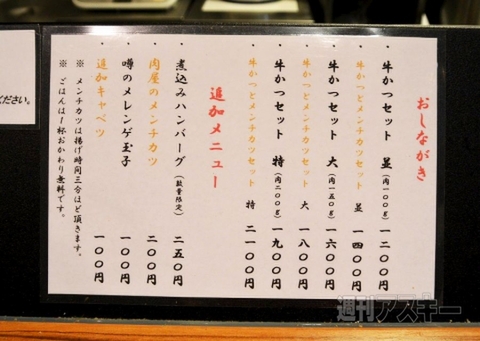 おしながき
・牛かつセット 並(肉一〇〇g) 一二〇〇円
・牛かつとメンチカツセット 並 一四〇〇円
・牛かつセット 大(肉一五〇g) 一六〇〇円
・牛かつとメンチカツセット 大 一八〇〇円
・牛かつセット 特(肉二〇〇g) 一九〇〇円
・牛かつとメンチカツセット 特 二一〇〇円
追加メニュー
・煮込みハンバーグ(数量限定) 二五〇円
・肉屋のメンチカツ 二〇〇円
・噂のメレンゲ玉子 一〇〇円
・追加キャベツ 一〇〇円
※ メンチカツは揚げ時間三分ほど頂きます。
※ ごはんは一杯おかわり無料です。
ださい。
週刊アスキー